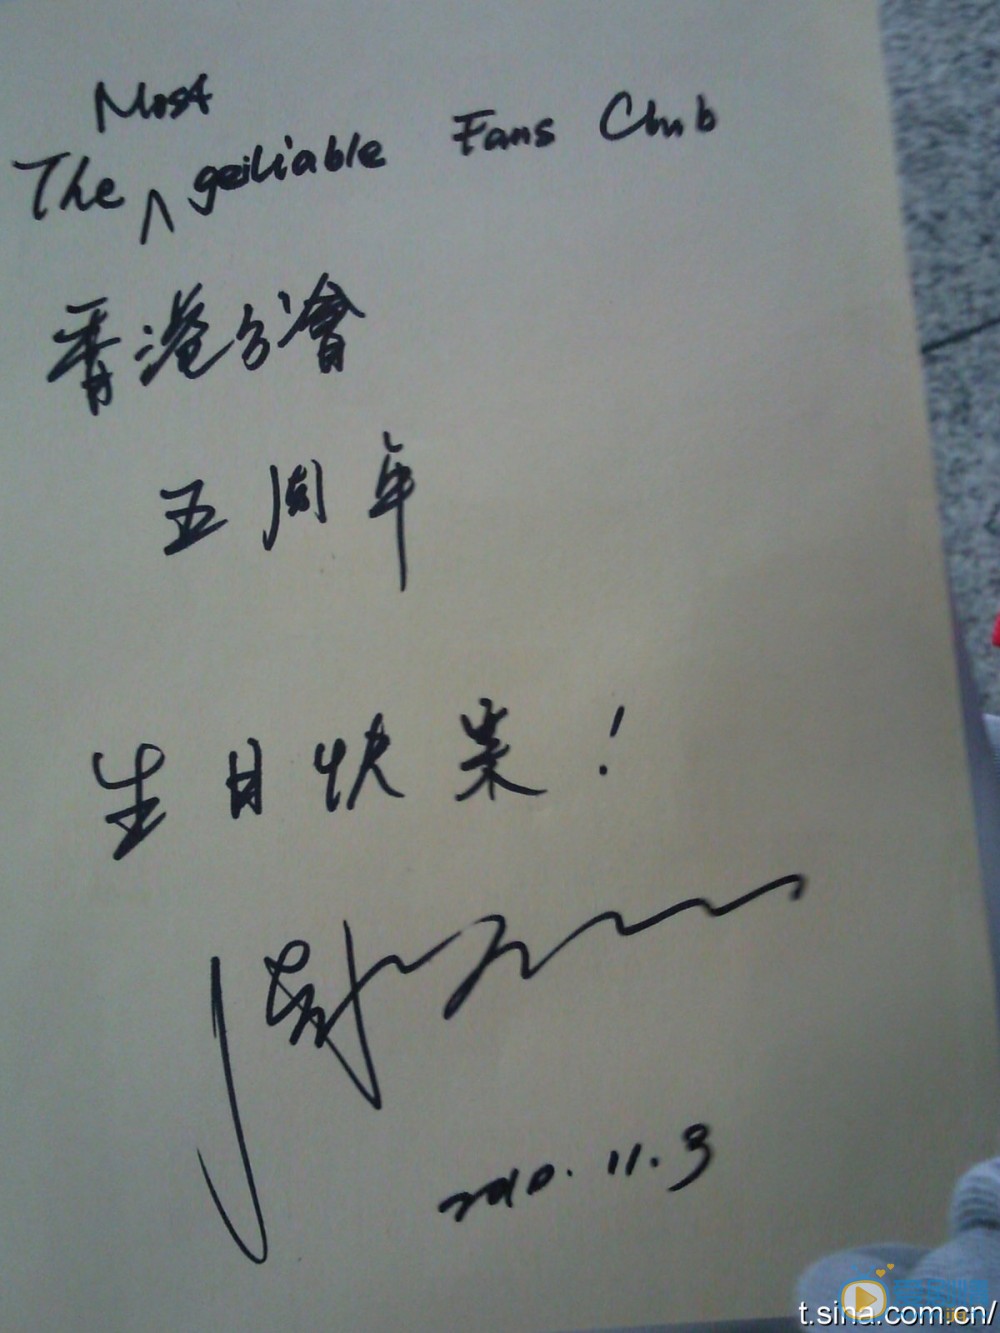 The Most geiliable Fans Club
香港分會
五周年
生日快樂！
2010.11.3
t.sina.com.cn/